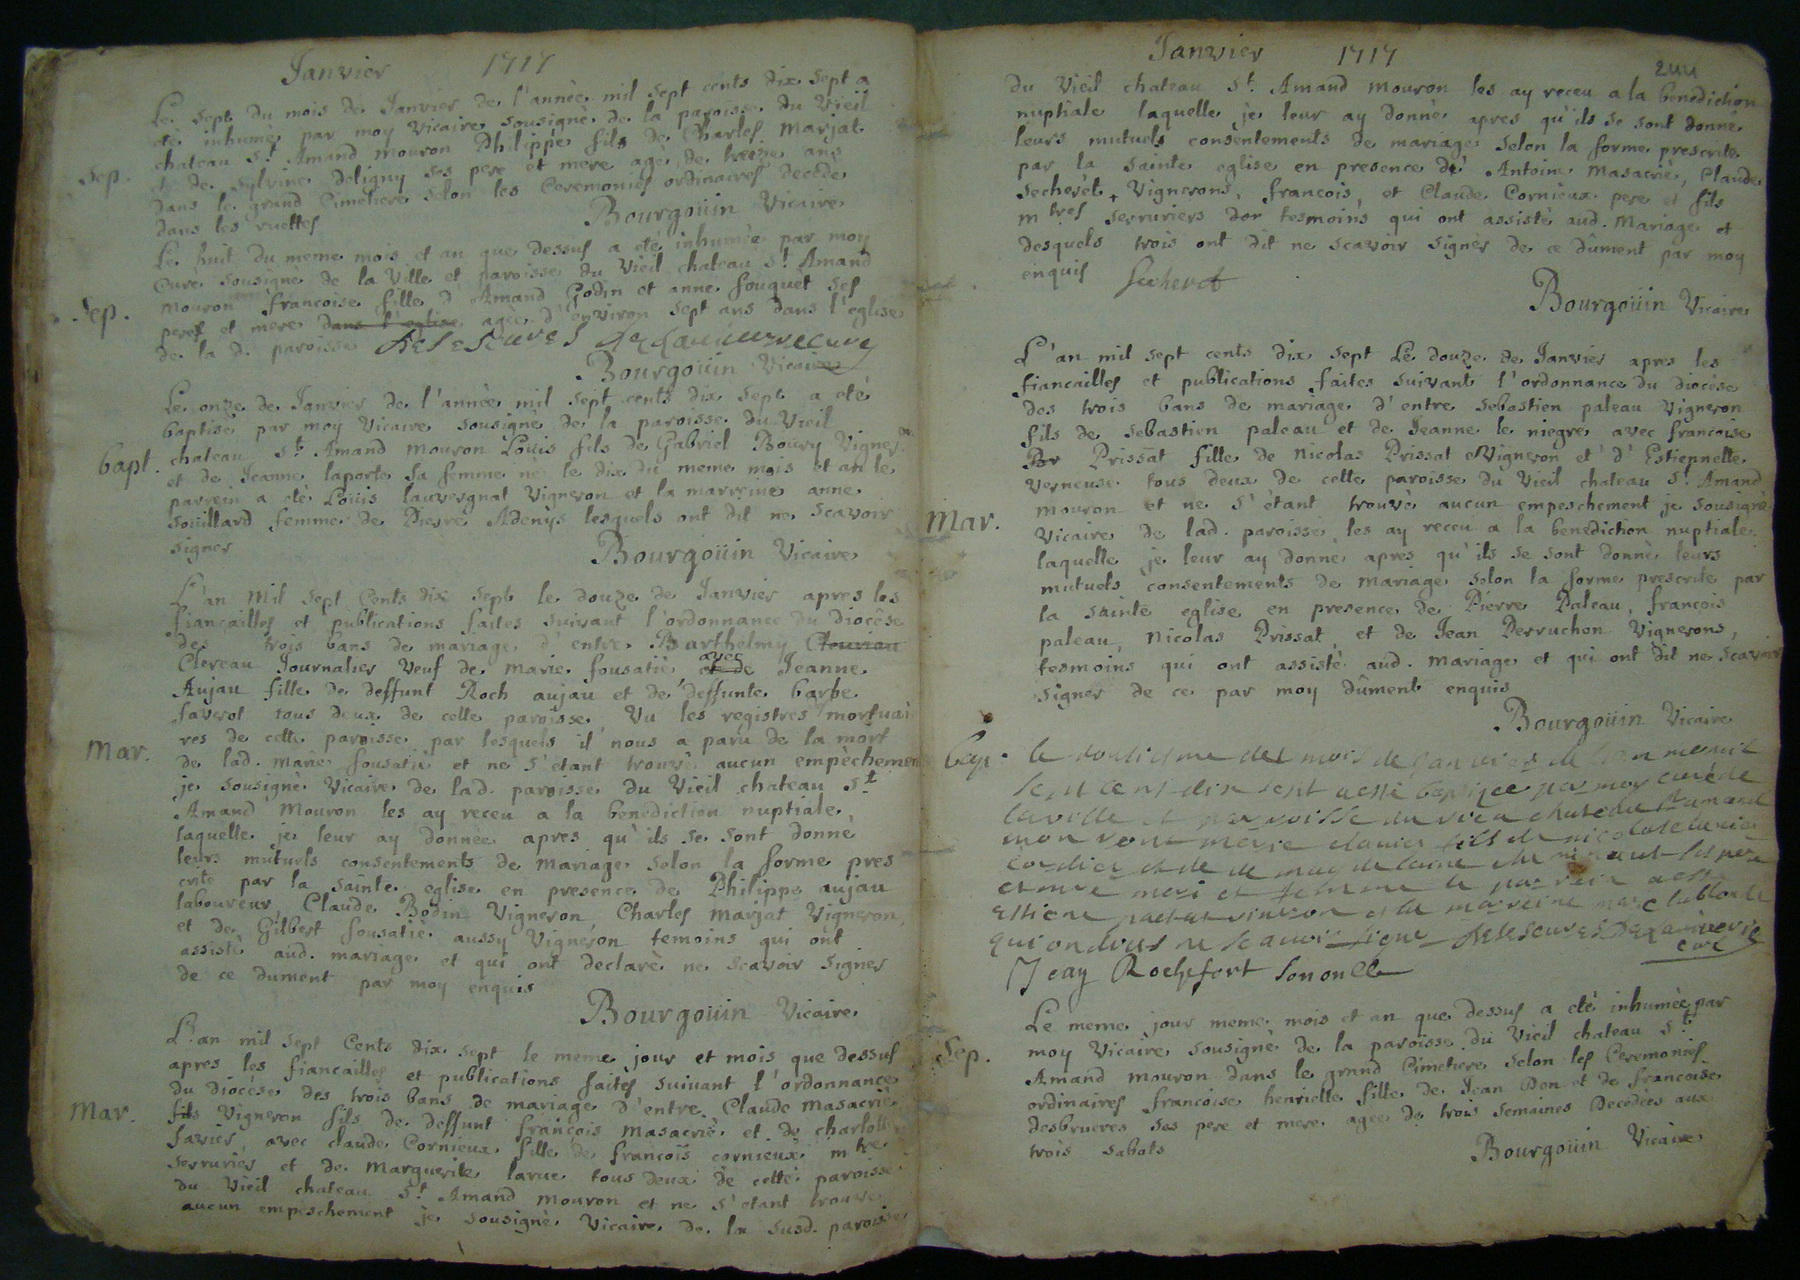 Janvier 1717
Le sept du mois de Janvier de l'année mil sept cents dix sept a
eté inhumé par moy Vicaire sousigné de la paroisse du Vieil
chateau St. Amand mouron Philippe fils de Charles Marjat
Sep. et de Sylvine deligny ses pere et mere agé de treize ans
dans le grand Cimetiere selon les Ceremonies ordinaires decedé
dans les ruettes
Bourgoüin Vicaire
Le huit du meme mois et an que dessus a eté inhumée par moy
Curé sousigné de la Ville et paroisse du Vieil chateau St. Amand
Sep. mouron francoise fille d'Amand Godin et anne fouquet ses
peres et mere dans l'eglise agée d'environ sept ans dans l'eglise
de la d. paroisse
Bourgoüin Vicaire
Le onze de Janvier de l'année mil sept cents dix sept a eté
baptisé par moy Vicaire sousigné de la paroisse du Vieil
bapt. chateau St. Amand mouron Louis fils de Gabriel Boury Vigneron
et de Jeanne laporte sa femme né le dix du meme mois et an le
parrein a eté Louis lauvergnat Vigneron et la marreine anne
soüillard femme de Pierre Adenys lesquels ont dit ne scavoir
signer
Bourgoüin Vicaire
L'an Mil sept Cents dix sept le douze de Janvier apres les
fiancailles et publications faites suivant l'ordonnance du diocêse
des trois bans de mariage d'entre Barthelmy
Clereau Journalier Veuf de marie fousatié avec Jeanne
Aujau fille de deffunt Roch aujau et de deffunte barbe
faverot tous deux de cette paroisse Vu les registres mortuai
res de cette paroisse par lesquels il nous a paru de la mort
Mar. de lad. marie fousatié et ne s'etant trouvé aucun empêchement
je sousigné Vicaire de lad. paroisse du Vieil chateau St.
Amand Mouron les ay receu a la benediction nuptiale
laquelle je leur ay donnée apres qu'ils se sont donné
leurs mutuels consentements de mariage selon la forme pres
crite par la sainte eglise en presence de Philippe aujau
laboureur, Claude Bodin Vigneron, Charles marjat Vigneron,
et de Gilbert fousatié aussy Vignéron temoins qui ont
assisté aud. mariage et qui ont declaré ne scavoir signer
de ce dument par moy enquis
Bourgoüin Vicaire
L'an mil sept Cents dix sept le meme jour et mois que dessus
apres les fiancailles et publications faites suivant l'ordonnance
du diocèse des trois bans de mariage d'entre Claude masacrié
Mar. fils Vigneron fils de deffunt françois masacrié et de charlotte
favier avec claude Cornieux fille de françois cornieux mtre
serruriér et de Marguerite larue tous deux de cette paroisse
du Vieil chateau St. Amand mouron et ne s'etant trouvé
aucun empeschement je sousigné Vicaire de la susd. paroisse
Janvier 1717
244
du Vieil chateau St. Amand mouron les ay receu a la benediction
nuptiale laquelle je leur ay donné apres qu'ils se sont donné
leurs mutuels consentements de mariage selon la forme prescrite
par la sainte eglise en presence de Antoine masacrié, Claude
secheret, Vignerons, francois, et Claude Cornieux pere et fils
mtres serruriers tesmoins qui ont assisté aud. Mariage et
desquels trois ont dit ne scavoir signér de ce dûment par moy
enquis Secheret
Bourgoüin Vicaire
L'an mil sept cents dix sept Le douze de Janvier apres les
fiancailles et publications faites suivant l'ordonnance du diocèse
des trois bans de mariage d'entre sebastien paleau Vigneron
fils de sebastien paleau et de Jeanne le niegre avec francoise
Prissat fille de nicolas Prissat Vigneron et d'Estiennette
verneuse tous deux de cette paroisse du Vieil chateau St. Amand
Mar. mouron et ne s'étant trouvé aucun empeschement je sousigné
Vicaire de lad. paroisse les ay receu a la benediction nuptiale
laquelle je leur ay donné apres qu'ils se sont donné leurs
mutuels consentements de mariage selon la forme prescrite par
la sainte eglise en presence de Pierre Paleau, francois
paleau, nicolas Prissat, et de Jean Perruchon Vignerons,
tesmoins qui ont assisté aud. mariage et qui ont dit ne scavoir
signer de ce par moy dûment enquis
Bourgoüin Vicaire
bap. le dousiesme des mois de Janvier de
sept cent dix sept a esté baptizee par moy curé de
la ville et parroisse du vieil chateau St amand
mouron marie fille de nicolas
cordier et de magdelaine ses pere
et mere le parrein a esté
estiene et la mareine marie lablonde
qui ont dit ne scavoir signer
curé
Jean Rochefort
Le meme jour meme mois et an que dessus a eté inhumée par
Sep. moy Vicaire sousigné de la paroisse du Vieil chateau St.
Amand mouron dans le grand Cimetiere selon les Ceremonies
ordinaires francoise henriette fille de Jean Bon et de francoise
desbrueres ses pere et mere agée de trois semaines Decedée aux
trois sabots
Bourgoüin Vicaire